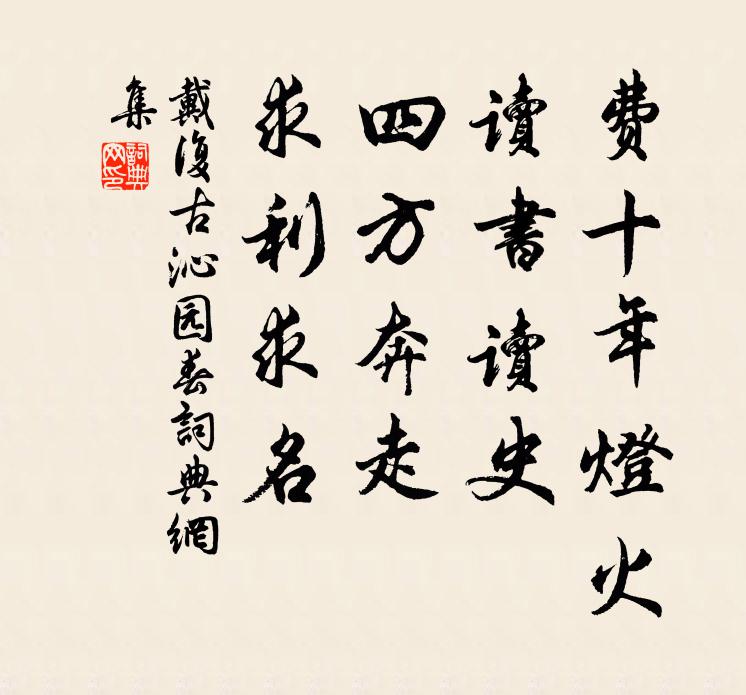 費十年燈火
讀書讀史
四方奔走
求利求名
戴復古沁园春詞典網
集
詞典
网印